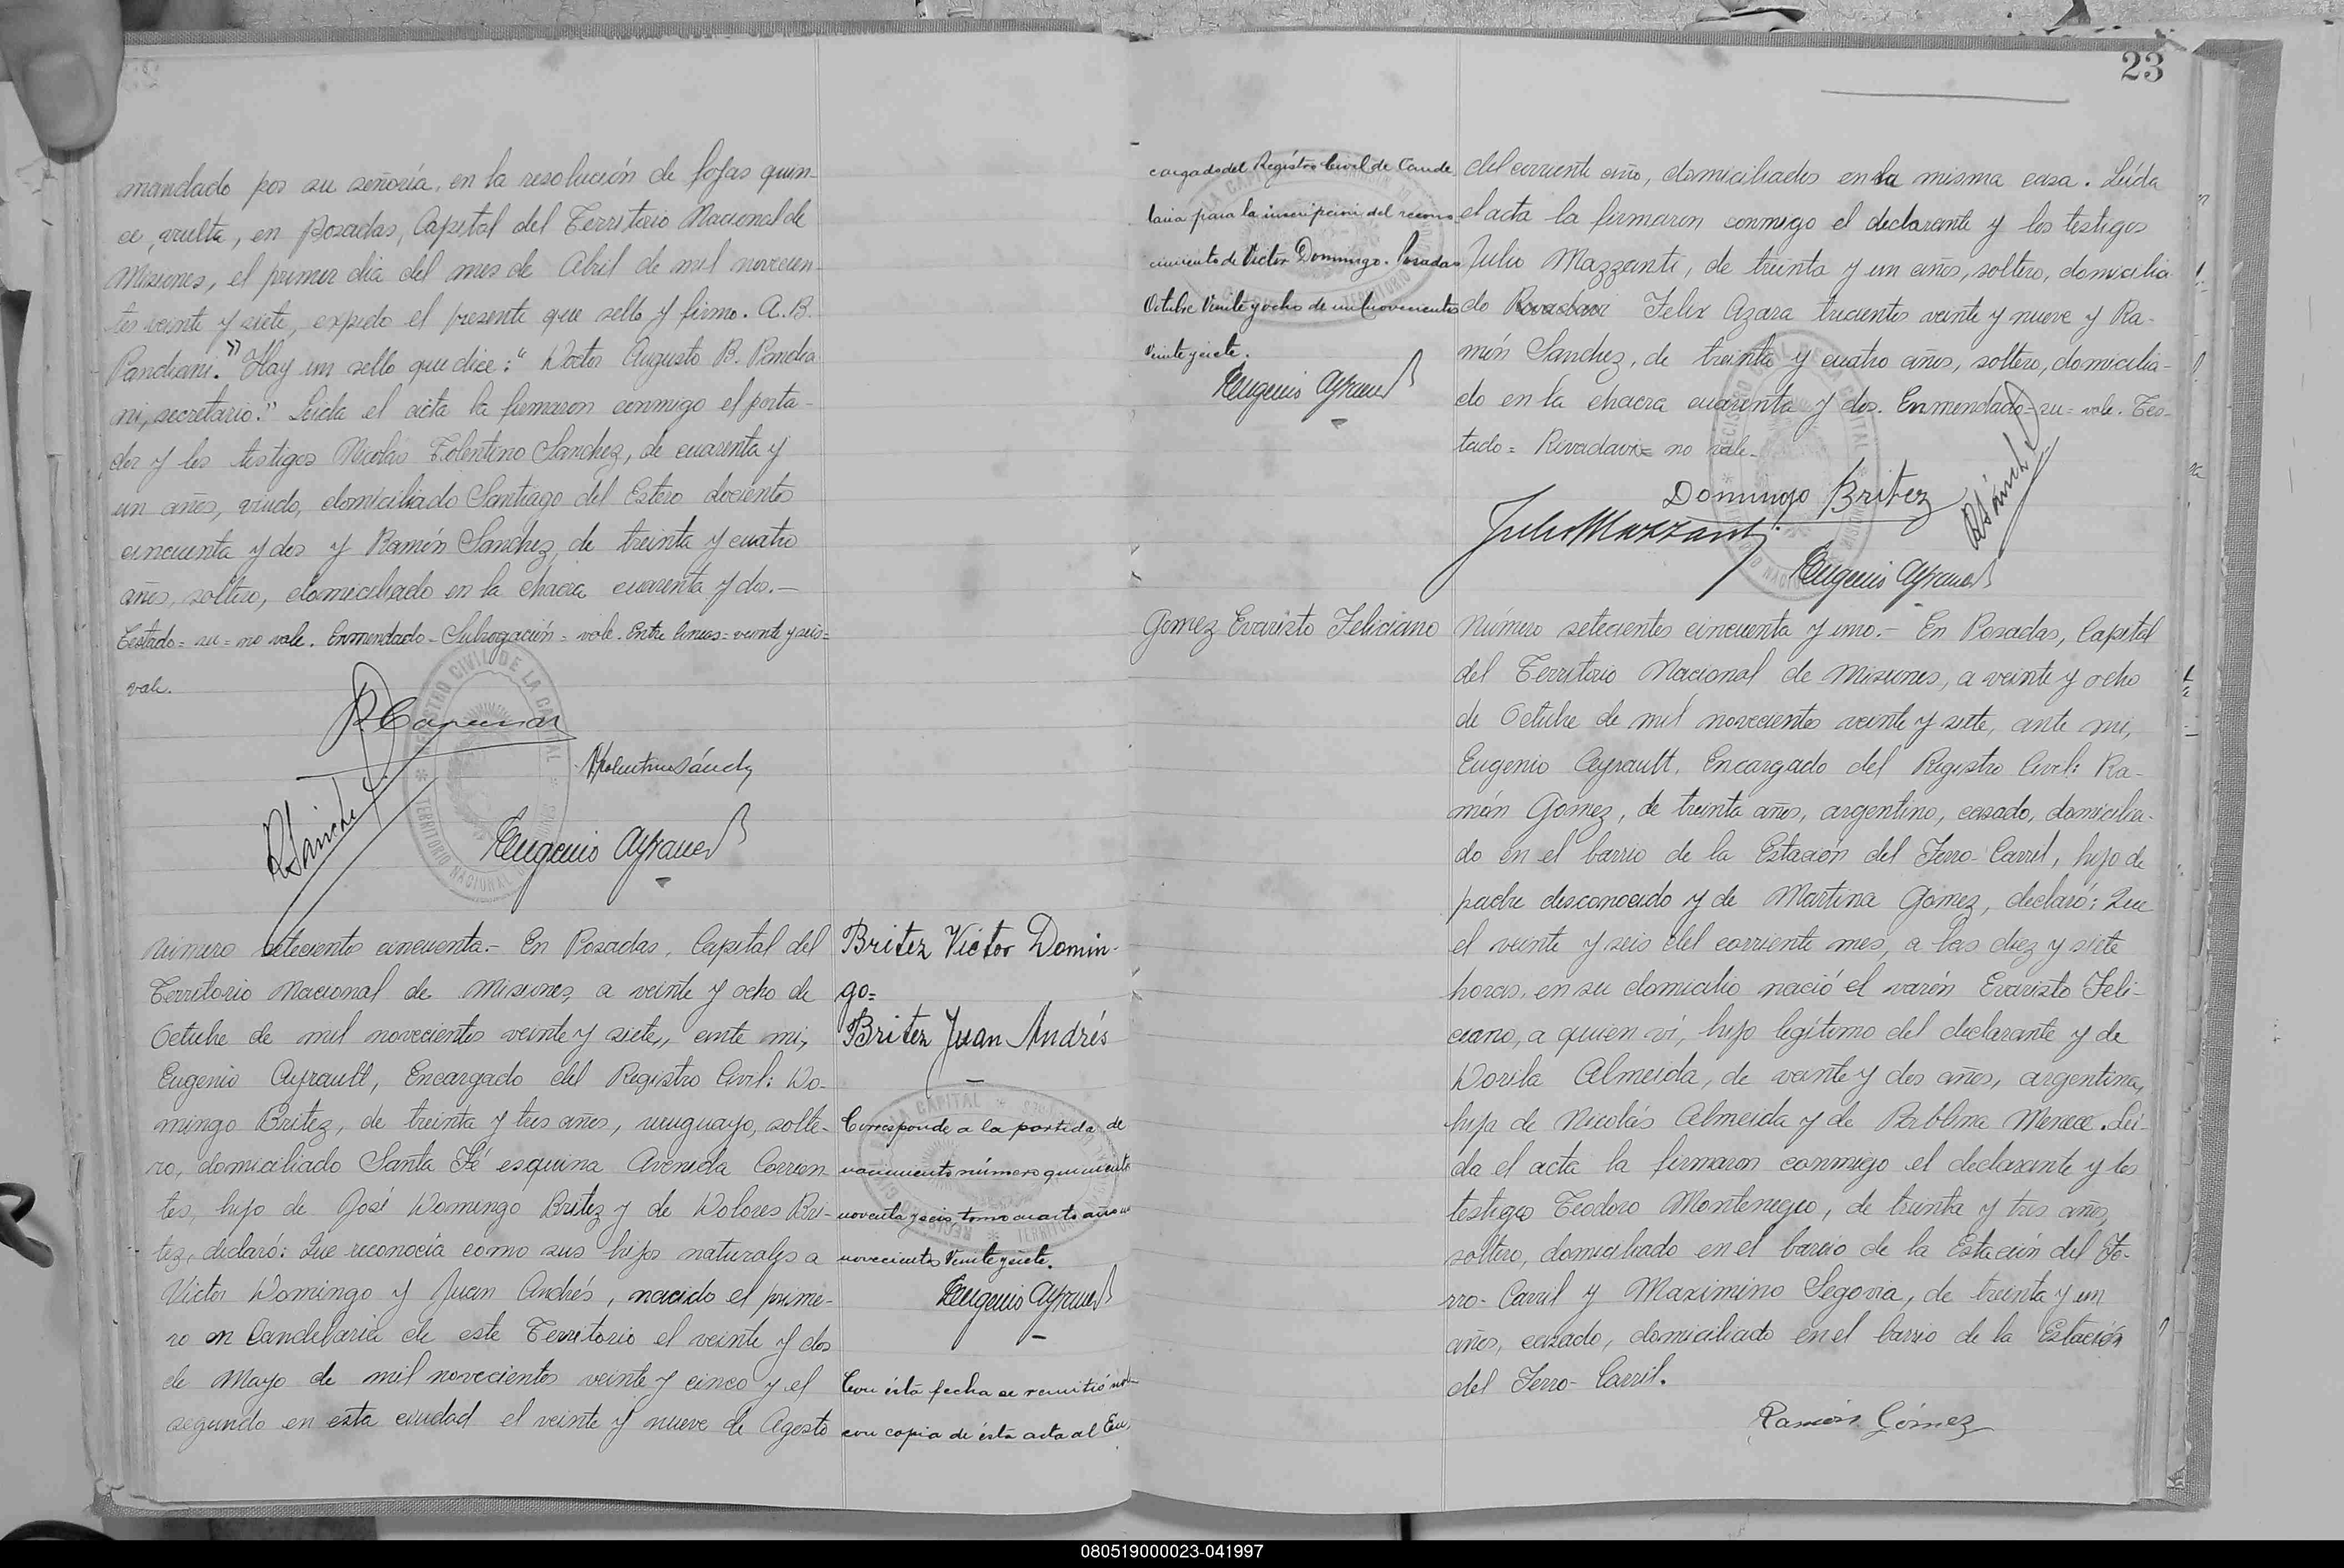 mandado por su señoría, en la resolución de fojas quin-
ce, vuelta, en Posadas, Capital del Territorio Nacional de
Misiones, el primer dia del mes de Abril de mil novecien-
tos veinte y siete, expido el presente que sello y firmo. A. B.
Pandiani." Hay un sello que dice: "Doctor Augusto B. Pandia-
ni, secretario." Leida el acta la firmaron conmigo el porta-
dor y los testigos Nicolás Tolentino Sanchez, de cuarenta y
un años, viudo, domiciliado Santiago del Estero docientos
cincuenta y dos y Ramón Sanchez, de treinta y cuatro
años, soltero, domiciliado en la chacra cuarenta y dos.-
Testado = su = no vale. Enmendado - Subrogación = vale. Entre lineas = veinte y seis =
vale.
RSánchez
Eugenio Ayrault
REGISTRO CIVIL DE LA CAPITAL
TERRITORIO NACIONAL
Número setecientos cincuenta.- En Posadas, Capital del
Territorio Nacional de Misiones, a veinte y ocho de
Octubre de mil novecientos veinte y siete, ante mi,
Eugenio Ayrault, Encargado del Registro Civil: Do-
mingo Britez, de treinta y tres años, uruguayo, solte-
ro, domiciliado Santa Fé esquina Avenida Corrien-
tes, hijo de José Domingo Britez y de Dolores Bri-
tez, declaró: Que reconocía como sus hijos naturales a
Victor Domingo y Juan Andrés, nacido el prime-
ro en Candelaria de este Territorio el veinte y dos
de Mayo de mil novecientos veinte y cinco y el
segundo en esta ciudad el veinte y nueve de Agosto
Britez Victor Domin-
go=
Britez Juan Andrés
Corresponde a la partida de
nacimiento número quinientos
noventa y seis tomo cuarto año
novecientos veinte y siete.
Eugenio Ayrault
Con ésta fecha se remitió
con copia de ésta acta al En
23
cargado del Registro Civil de Cande
laria para la inscripción del recono
cimiento de Victor Domingo. Posadas
Octubre veinte y ocho de mil novecientos
veinte y siete.
Eugenio Ayrault
del corriente año, domiciliados en la misma casa. Leída
el acta la firmaron conmigo el declarante y los testigos
Julio Mazzanti, de treinta y un años, soltero, domicilia-
do Rivadavi Felix Azara trecientos veinte y nueve y Ra-
món Sanchez, de treinta y cuatro años, soltero, domicilia-
do en la chacra cuarenta y dos. Enmendado = su = vale. Tes-
tado = Rivadavi = no vale.-
Domingo Britez
Julio Mazzanti
RSánchez
Eugenio Ayrault
Gomez Evaristo Feliciano
Número setecientos cincuenta y uno.- En Posadas, Capital
del Territorio Nacional de Misiones, a veinte y ocho
de Octubre de mil novecientos veinte y siete, ante mi,
Eugenio Ayrault, Encargado del Registro Civil: Ra-
món Gomez, de treinta años, argentino, casado, domicilia-
do en el barrio de la Estación del Ferro-Carril, hijo de
padre desconocido y de Martina Gomez, declaró: Que
el veinte y seis del corriente mes, a las diez y siete
horas, en su domicilio nació el varón Evaristo Feli-
ciano, a quien vi, hijo legítimo del declarante y de
Dorila Almeida, de veinte y dos años, argentina,
hija de Nicolás Almeida y de Menece. Leí-
da el acta la firmaron conmigo el declarante y los
testigos Teodoro Montenegro, de treinta y tres años,
soltero, domiciliado en el barrio de la Estación del Fe-
rro-Carril y Maximino Segovia, de treinta y un
años, casado, domiciliado en el barrio de la Estación
del Ferro-Carril.
Ramón Gómez
080519000023-041997